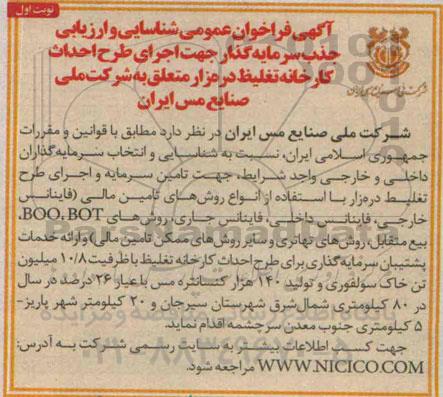 نوبت اول
آگهی فراخوان عمومی شناسایی و ارزیابی
جذب سرمایه گذار جهت اجرای طرح احداث
کارخانه تغلیظ دره‌زار متعلق به شرکت ملی
صنایع مس ایران
شرکت ملی صنایع مس ایران
شرکت ملی صنایع مس ایران در نظر دارد مطابق با قوانین و مقررات
جمهوری اسلامی ایران، نسبت به شناسایی و انتخاب سرمایه‌گذاران
داخلی و خارجی واجد شرایط، جهت تامین سرمایه و اجرای طرح
تغلیط دره‌زار با استفاده از انواع روش‌های تأمین مالی (فاینانس
خارجی، فاینانس داخلی، فاینانس جاری، روش‌های BOO، BOT،
بیع متقابل، روش‌های تهاتری و سایر روش‌های ممکن تامین مالی) و ارائه خدمات
پشتیبان سرمایه گذاری برای طرح احداث کارخانه تغلیظ با ظرفیت ۱۰/۸ میلیون
تن خاک سولفوری و تولید ۱۴۰ هزار کنسانتره مس با عیار ۲۶ درصد در سال
در ۸۰ کیلومتری شمال شرق شهرستان سیرجان و ۲۰ کیلومتر شهر پاریز-
۵ کیلومتری جنوب معدن سرچشمه اقدام نماید.
جهت کسب اطلاعات بیشتر به سایت رسمی شرکت به آدرس:
WWW.NICICO.COM مراجعه شود.
ParsNamadData
پایگاه اطلاع رسانی مناقصه و مزایده
۰۲۱-۸۸۳۴۹۶۷۰-۵